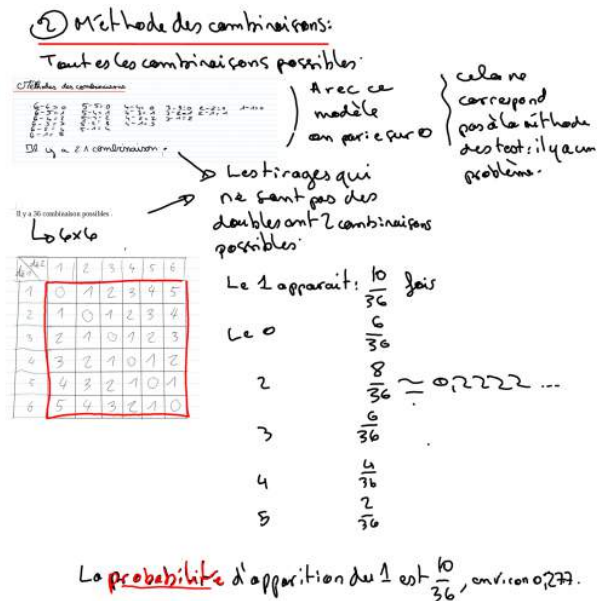 ② Méthode des combinaisons:
Toutes les combinaisons possibles:
Méthodes des combinaisons
Il y a 21 combinaison.
Avec ce
modèle
on parie sur 0
cela ne
correspond
pas à la méthode
des test: il y a un
problème.
Les tirages qui
ne sont pas des
doubles ont 2 combinaisons
possibles.
Il y a 36 combinaison possibles
6x6
dé 2 1 2 3 4 5 6
dé 1
1 0 1 2 3 4 5
2 1 0 1 2 3 4
3 2 1 0 1 2 3
4 3 2 1 0 1 2
5 4 3 2 1 0 1
6 5 4 3 2 1 0
Le 1 apparait: 10/36 fois
Le 0 6/36
2 8/36 ≈ 0,2222 ...
3 6/36
4 4/36
5 2/36
La probabilité d'apparition du 1 est 10/36, environ 0,277.